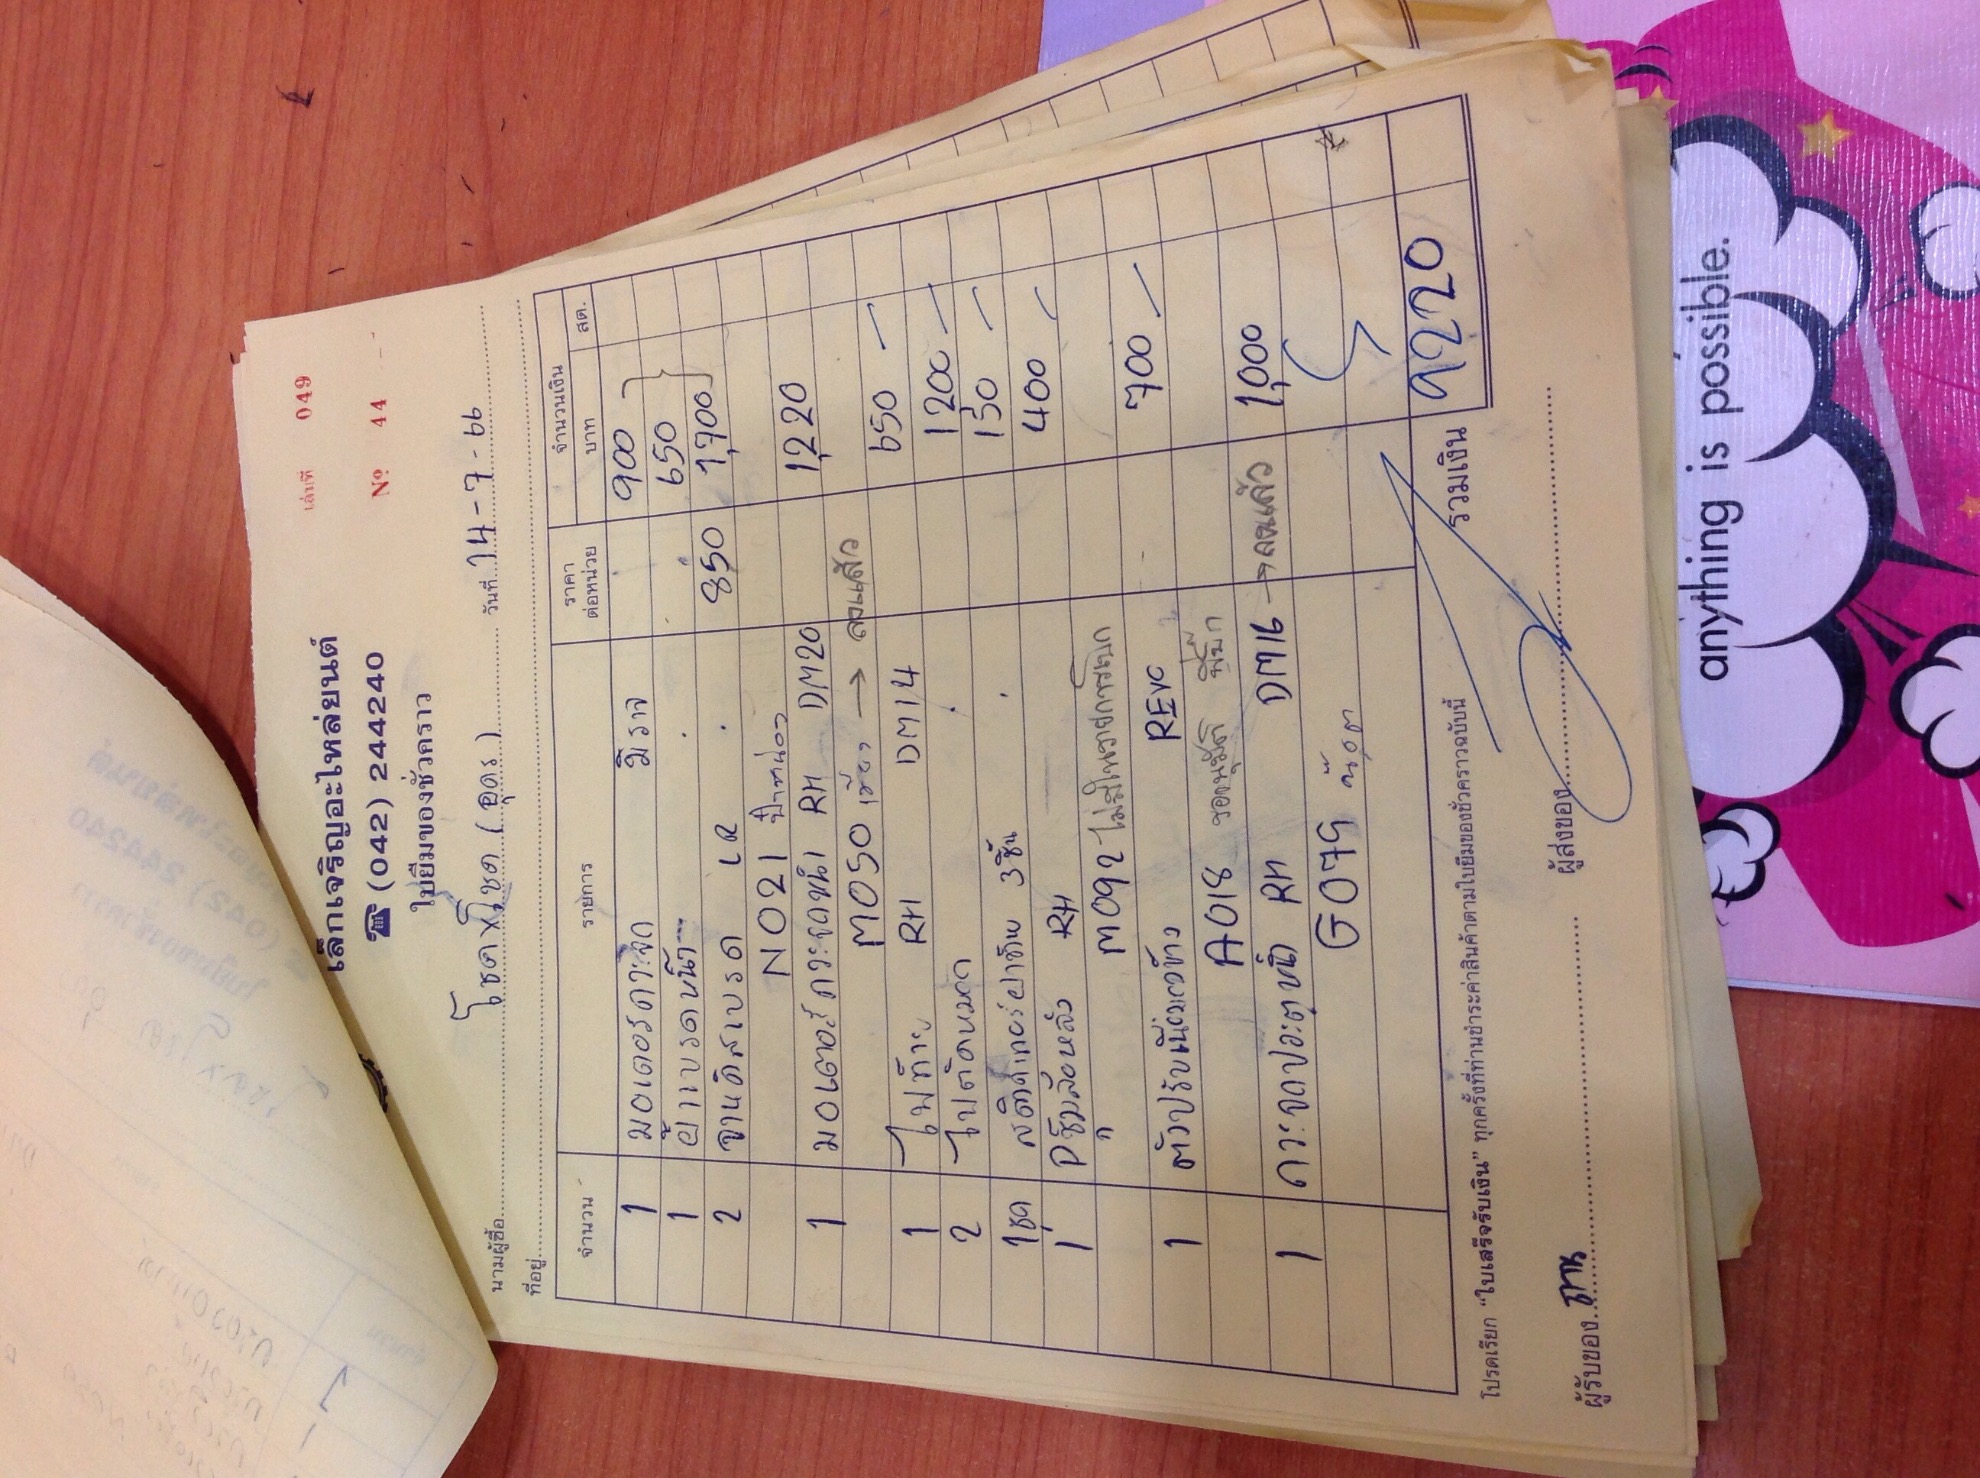 เล่มที่ 049
เล็กเจริญอะไหล่ยนต์
☎ (042) 244240
ใบยืมของชั่วคราว
Nº 44
นามผู้ซื้อ โชคxโชค (อุดร) วันที่ 14-7-66
ที่อยู่
จำนวน รายการ ราคาต่อหน่วย จำนวนเงิน บาท สต.
1 มอเตอร์กระจก มิราจ 900
1 ผ้าเบรคหน้า 650
2 จานดิสเบรค LR 850 1,700
N021 ป๋าหน่อง
1 มอเตอร์กระจกหน้า RH DM20 1,220
M050 → ลงแล้ว
1 ไฟท้าย RH DM14 650
2 ใบตัดหมอก 1200
1ชุด สติ๊กเกอร์ 3ชิ้น 150
1 RH 400
M092 ไม่มีในรายการเบิก
1 REVO 700
A018 ของนุมัติ พี่บิ๊ก
1 กระจกประตูหน้า RH DM16 → ลงแล้ว 1,000
G079 น๊อต
รวมเงิน 9220
โปรดเรียก “ใบเสร็จรับเงิน” ทุกครั้งที่ท่านชำระค่าสินค้าตามใบยืมของชั่วคราวฉบับนี้
ผู้รับของ ผู้ส่งของ
anything is possible.